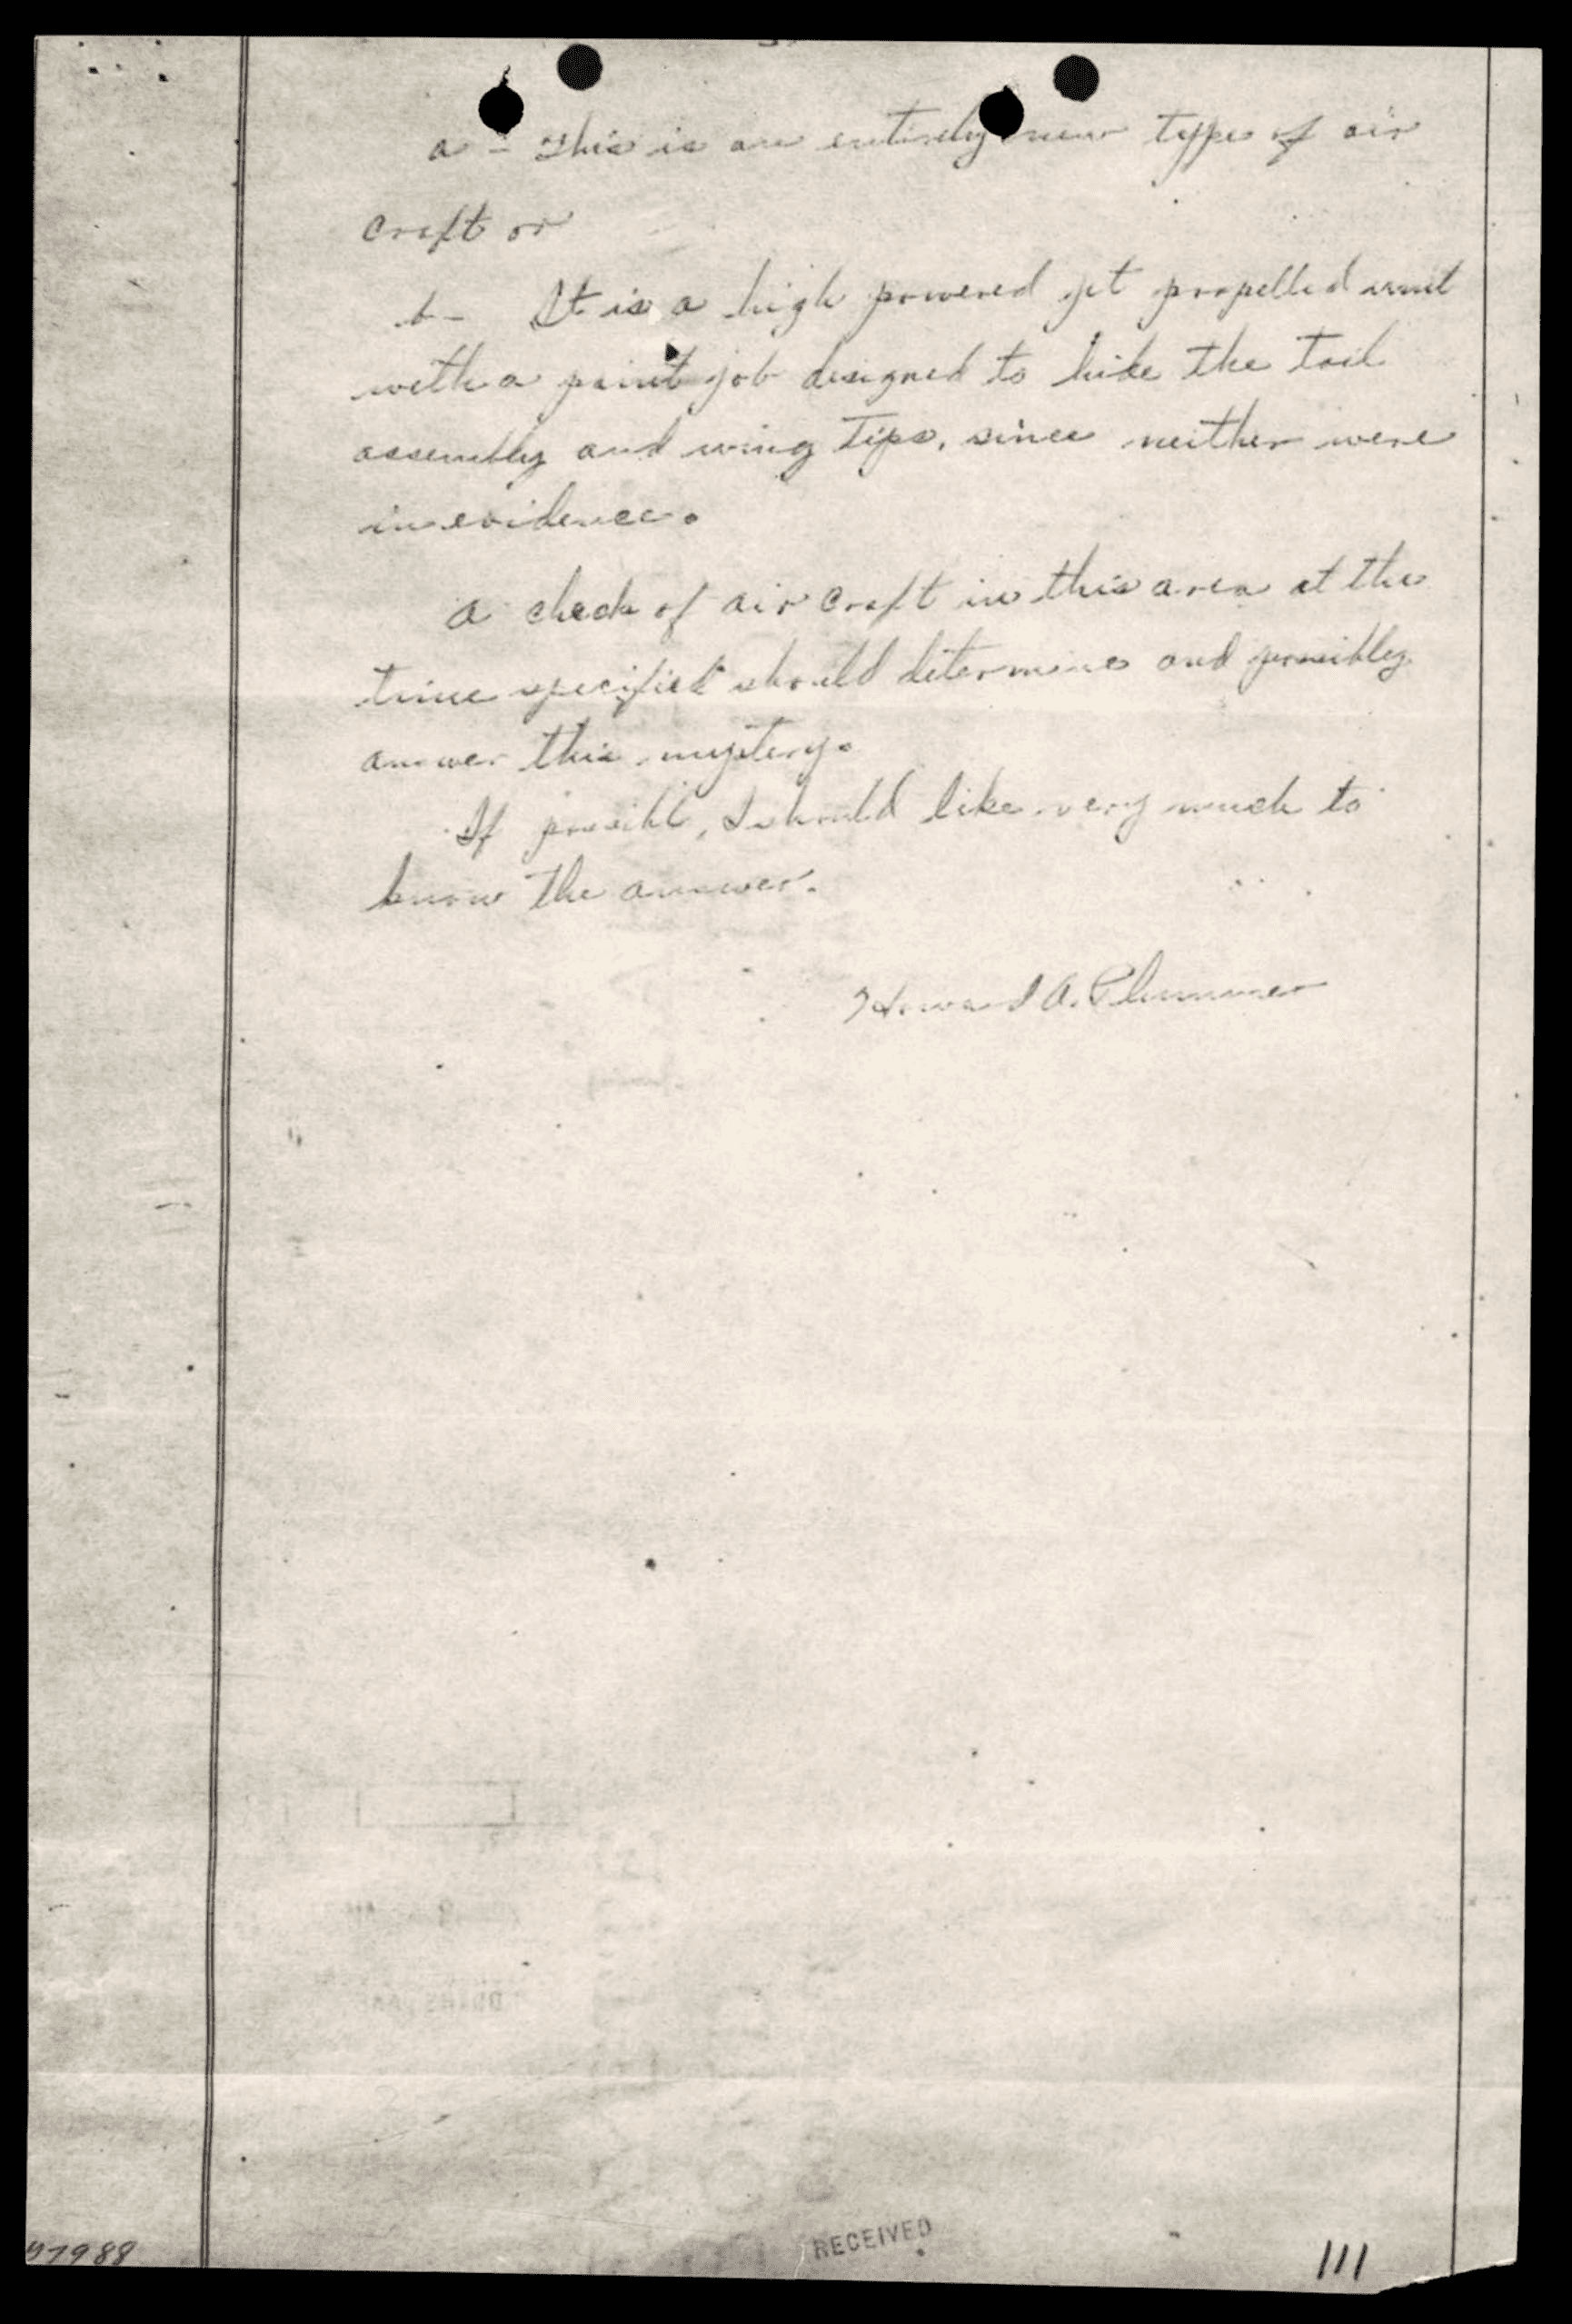 a - This is an entirely new type of air
craft or
b - It is a high powered jet propelled unit
with a paint job designed to hide the tail
assembly and wing tips, since neither were
in evidence.
a check of air craft in this area at the
time specified should determine and possibly
answer this mystery.
If possibl, I should like very much to
know the answer.
Howard A. Plummer
RECEIVED
111
57988